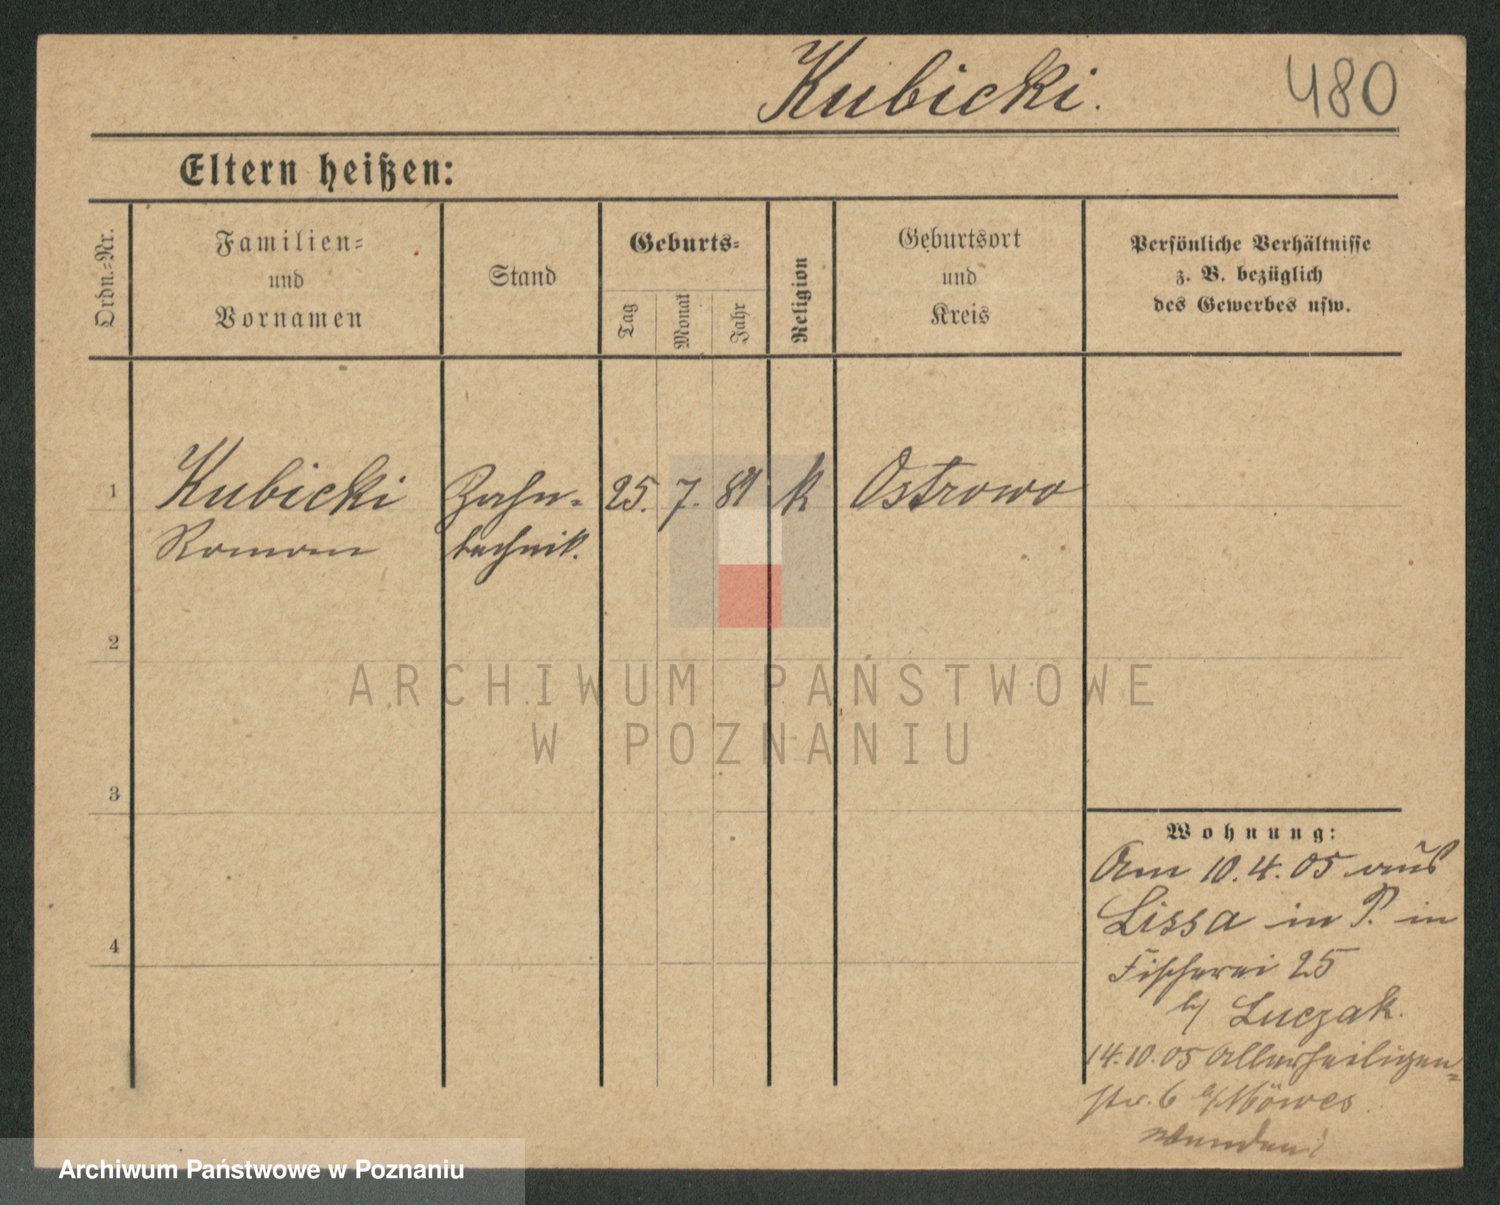 Kubicki.
480
Eltern heißen:
Ordn.-Nr.
Familien-
und
Vornamen
Stand
Geburts-
Tag
Monat
Jahr
Religion
Geburtsort
und
Kreis
Persönliche Verhältnisse
z. B. bezüglich
des Gewerbes usw.
1
Kubicki
Roman
Zahn-
technik.
25.
7.
81
k
Ostrowo
2
3
4
ARCHIWUM PAŃSTWOWE
W POZNANIU
Wohnung:
Am 10.4.05 aus
Lissa in P. in
Fischerei 25
b/ Luczak.
14.10.05 Allerheiligen-
str. 6 b/ Möwes
wenden!
Archiwum Państwowe w Poznaniu